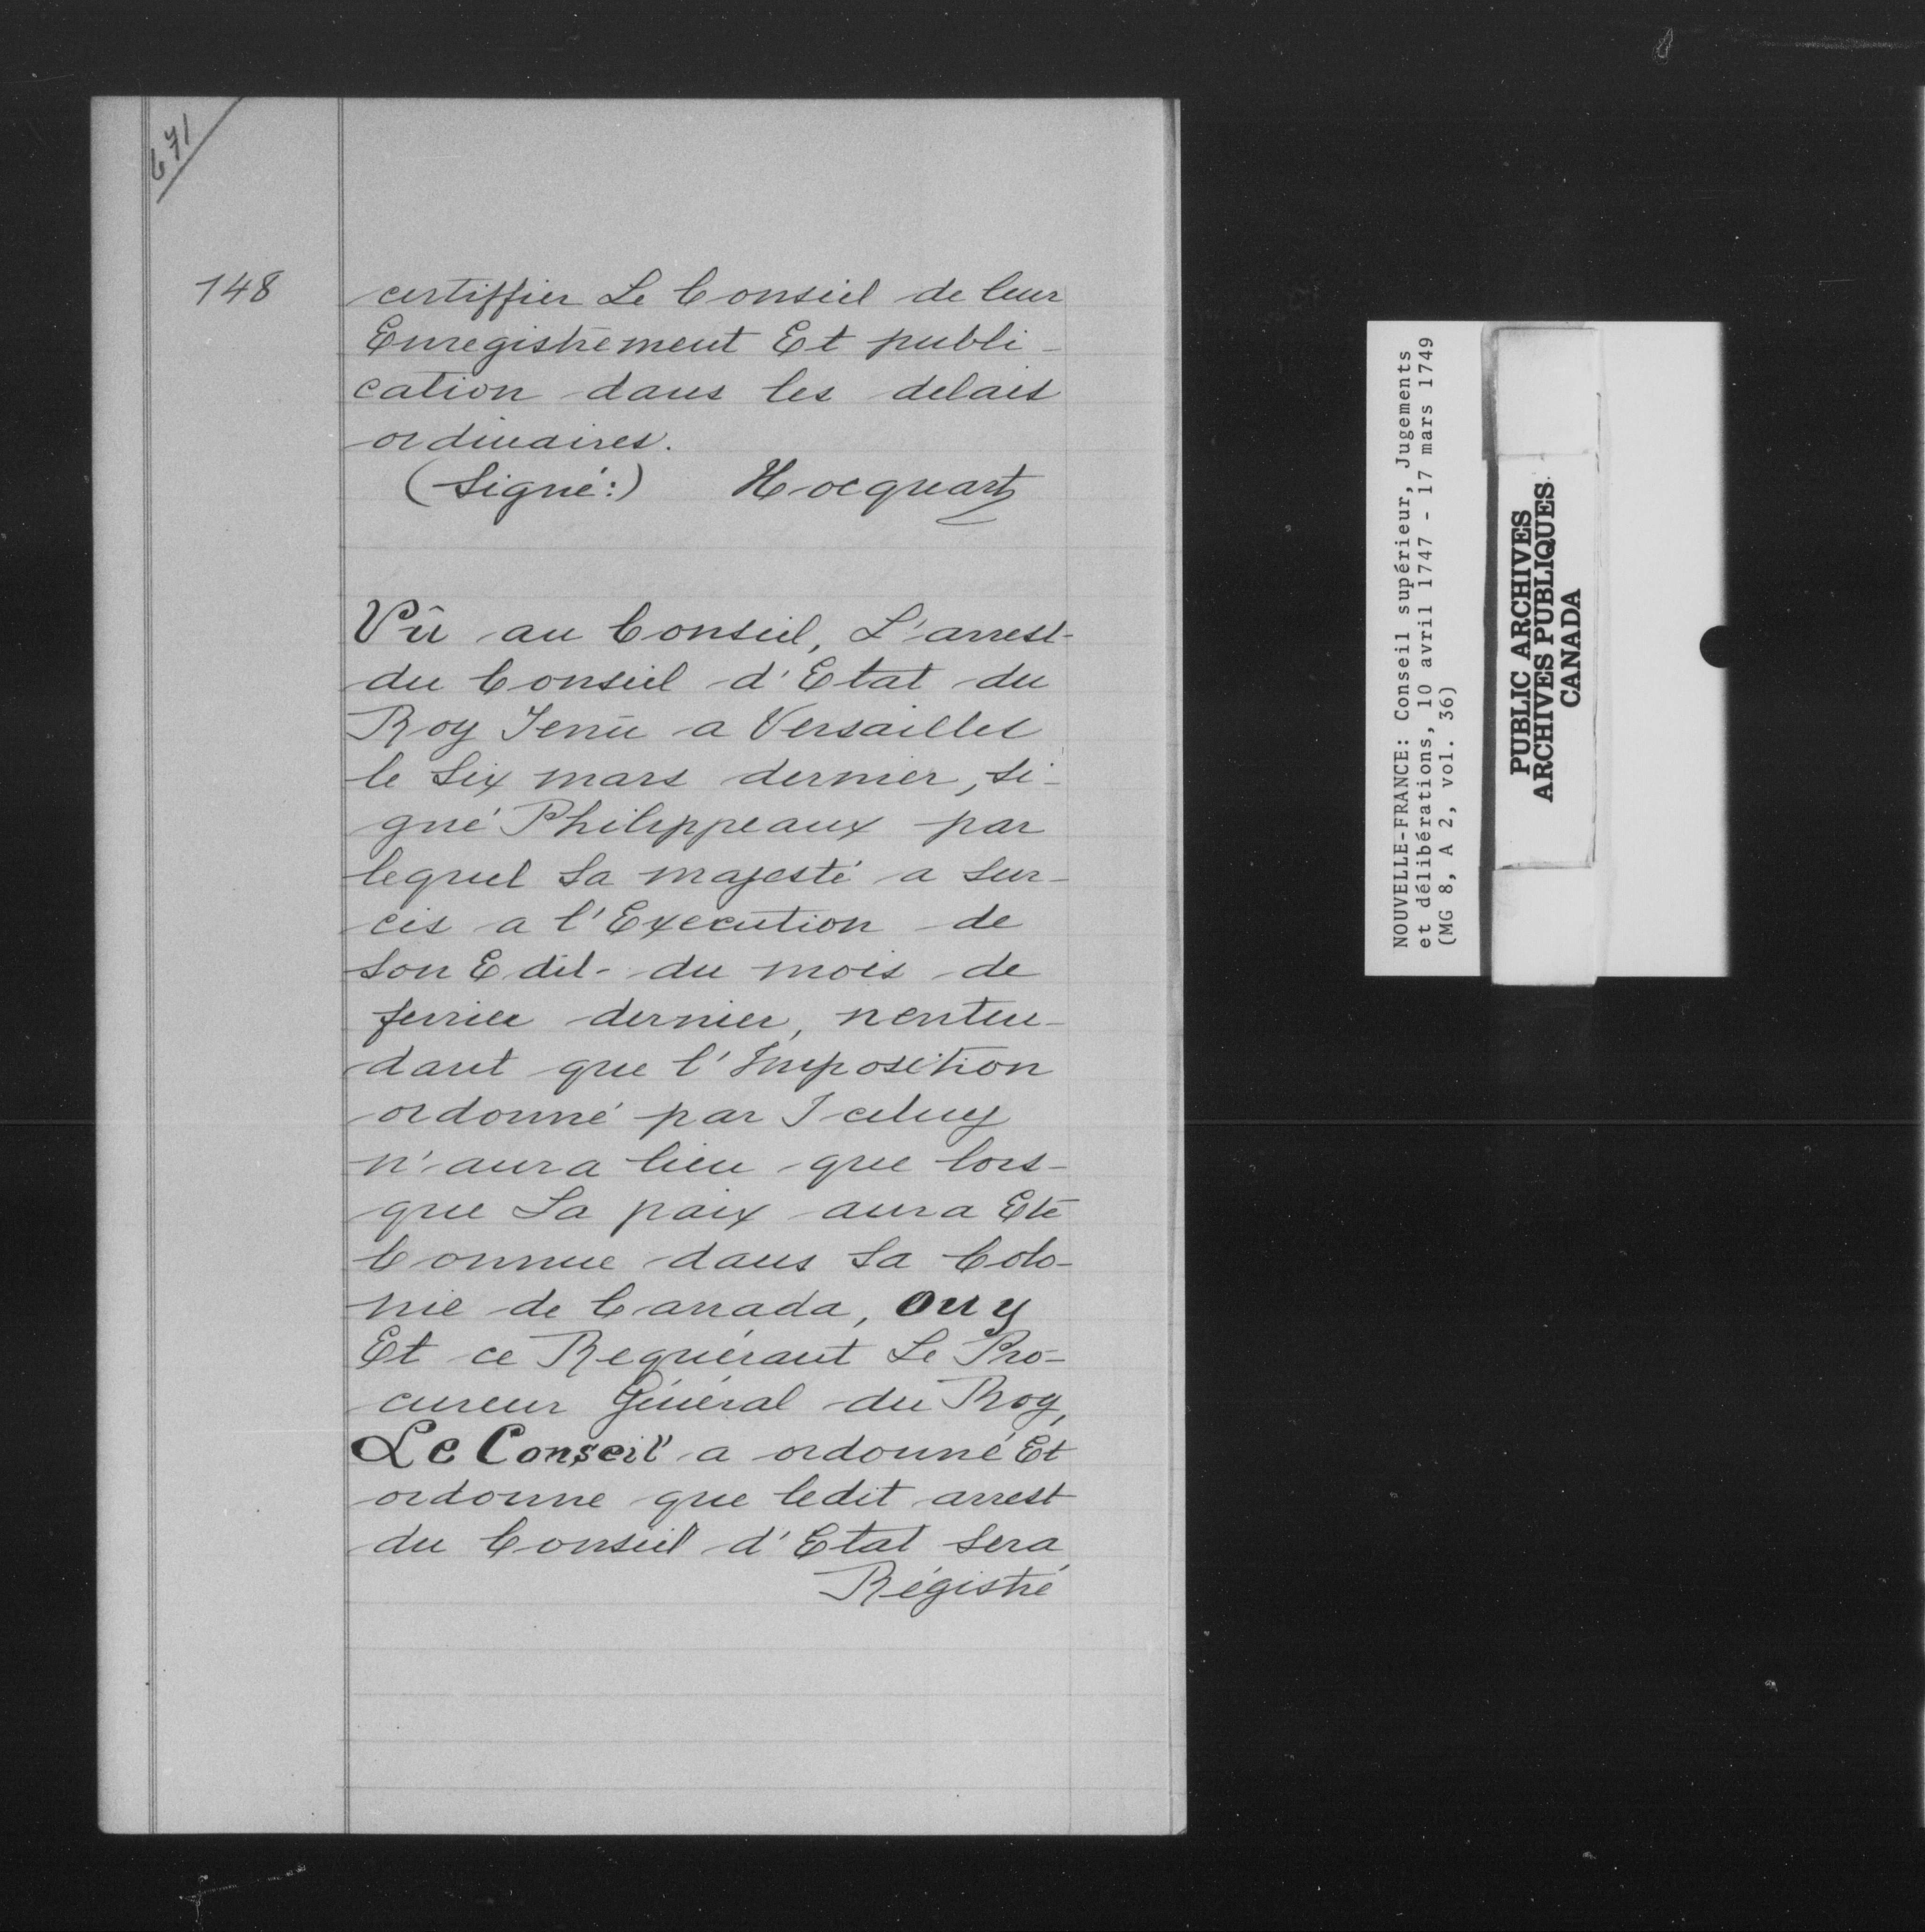 671
148
certiffier Le Conseil de leur
Enregistrement Et publi-
cation dans les delais
ordinaires.
(Signé:) Hocquart
Vû au Conseil, L'arrest
du Conseil d'Etat du
Roy Tenü a Versailles
le Six mars dernier, Si-
gné Philippeaux par
lequel Sa majesté a Sur-
cis a l'Execution de
Son Edit du mois de
fevrier dernier, nenten-
dant que l'Imposition
ordonné par Iceluy
n'aura lieu que lors-
que La paix aura Eté
Connue dans Sa Colo-
nie de Canada, Ouy
Et ce Requérant Le Pro-
cureur Général du Roy,
Le Conseil a ordonné Et
ordonne que ledit arrest
du Conseil d'Etat Sera
Régistré
NOUVELLE-FRANCE: Conseil supérieur, Jugements
et délibérations, 10 avril 1747 - 17 mars 1749
(MG 8, A 2, vol. 36)
PUBLIC ARCHIVES
ARCHIVES PUBLIQUES
CANADA